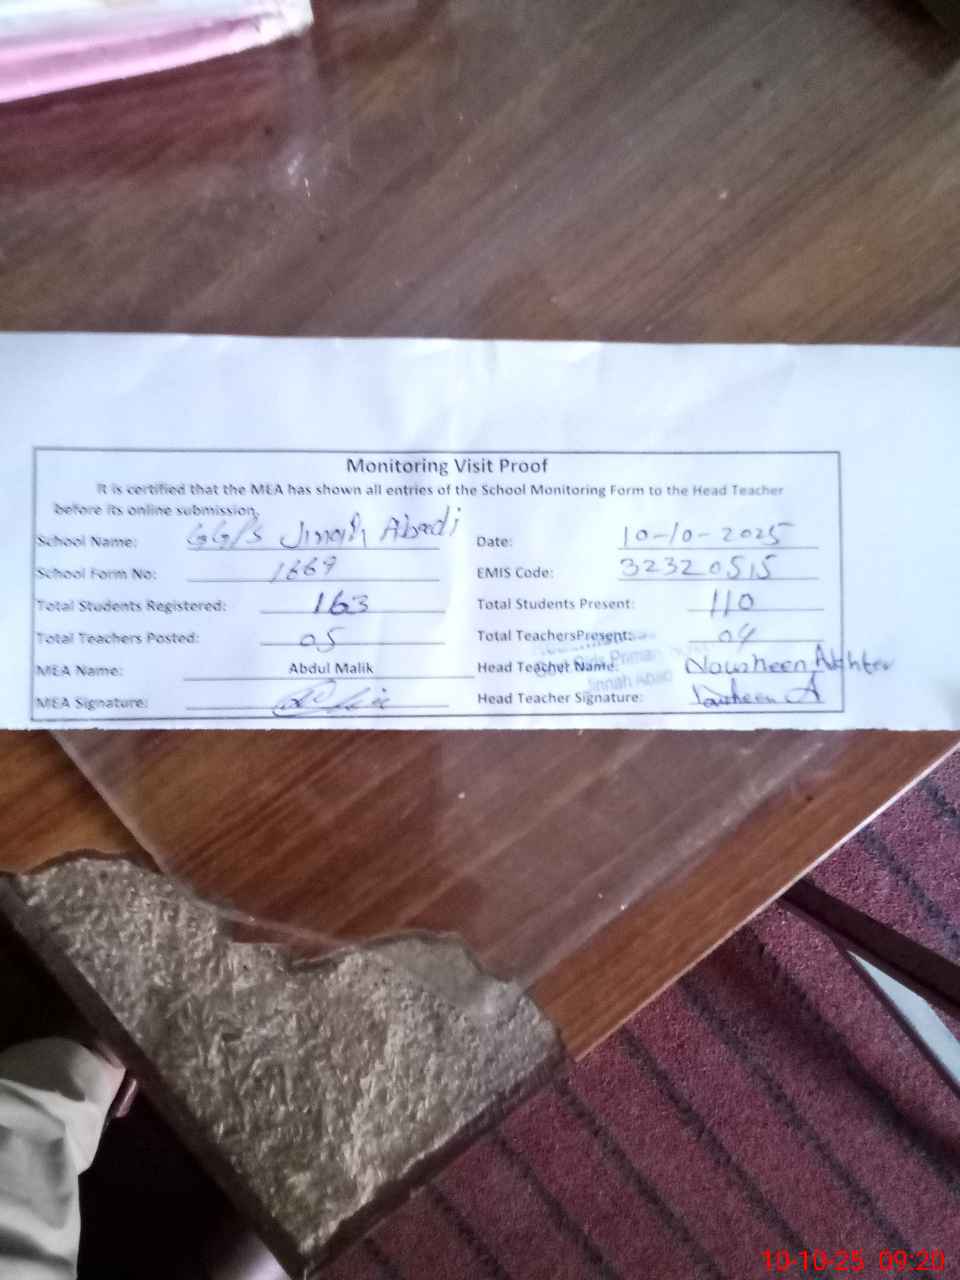 Monitoring Visit Proof
It is certified that the MEA has shown all entries of the School Monitoring Form to the Head Teacher
before its online submission.
School Name: GGPS Jinnah Abadi Date: 10-10-2025
School Form No: 1669 EMIS Code: 32320515
Total Students Registered: 163 Total Students Present: 110
Total Teachers Posted: 05 Total TeachersPresent: 04
MEA Name: Abdul Malik Head Teacher Name: Nowsheen Akhter
Girls Primar
Jinnah Abad
MEA Signature: Head Teacher Signature: Nowsheen A
10-10-25 09:20